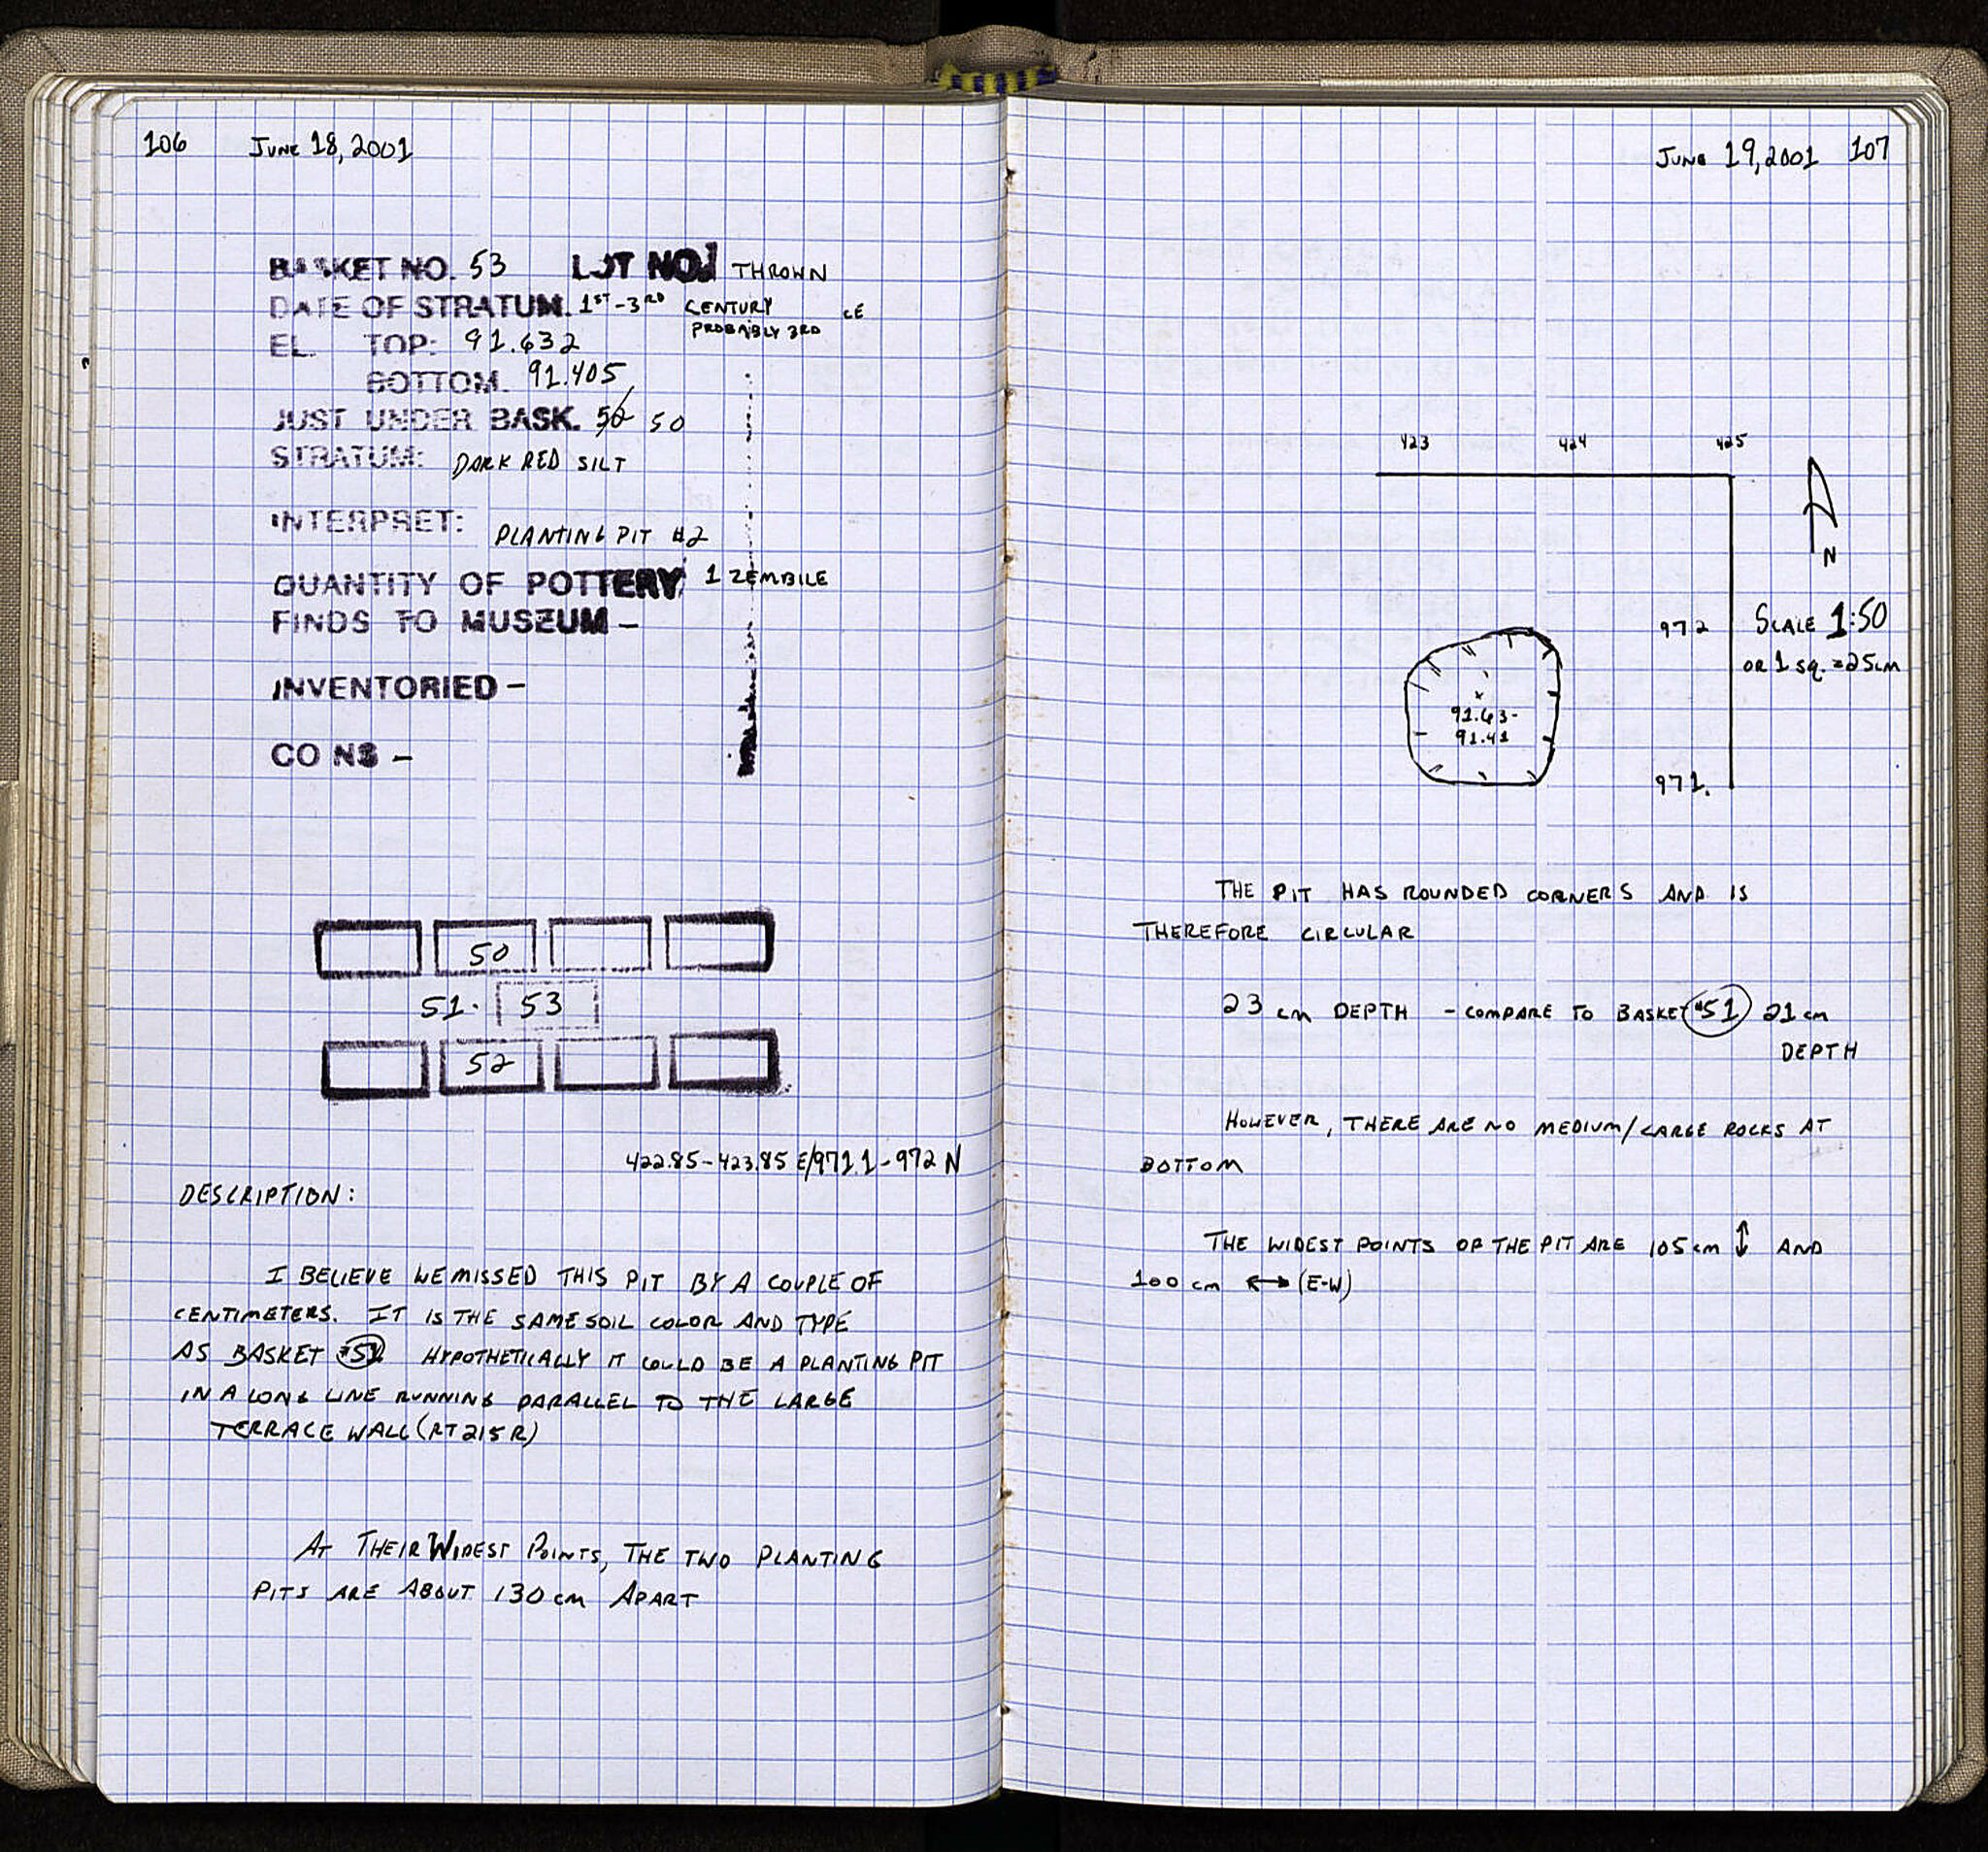 106 JUNE 18, 2001
BASKET NO. 53 LOT NO. THROWN
DATE OF STRATUM. 1ST-3RD CENTURY CE
PROBABLY 3RD
EL. TOP: 91.632
BOTTOM. 91.405
JUST UNDER BASK. 52 50
STRATUM: DARK RED SILT
INTERPRET: PLANTING PIT #2
QUANTITY OF POTTERY 1 ZEMBILE
FINDS TO MUSEUM -
INVENTORIED -
COINS -
50
51. 53
52
422.85-423.85 E/971.1-972 N
DESCRIPTION:
I BELIEVE WE MISSED THIS PIT BY A COUPLE OF
CENTIMETERS. IT IS THE SAME SOIL COLOR AND TYPE
AS BASKET #51 HYPOTHETICALLY IT COULD BE A PLANTING PIT
IN A LONG LINE RUNNING PARALLEL TO THE LARGE
TERRACE WALL (RT 215 R)
AT THEIR WIDEST POINTS, THE TWO PLANTING
PITS ARE ABOUT 130 cm APART
JUNE 19, 2001 107
423 424 425
N
972 SCALE 1:50
OR 1 SQ. = 25CM
91.63-
91.41
971.
THE PIT HAS ROUNDED CORNERS AND IS
THEREFORE CIRCULAR
23 cm DEPTH - COMPARE TO BASKET #51 21 cm
DEPTH
HOWEVER, THERE ARE NO MEDIUM/LARGE ROCKS AT
BOTTOM
THE WIDEST POINTS OF THE PIT ARE 105 cm ↕ AND
100 cm ↔ (E-W)